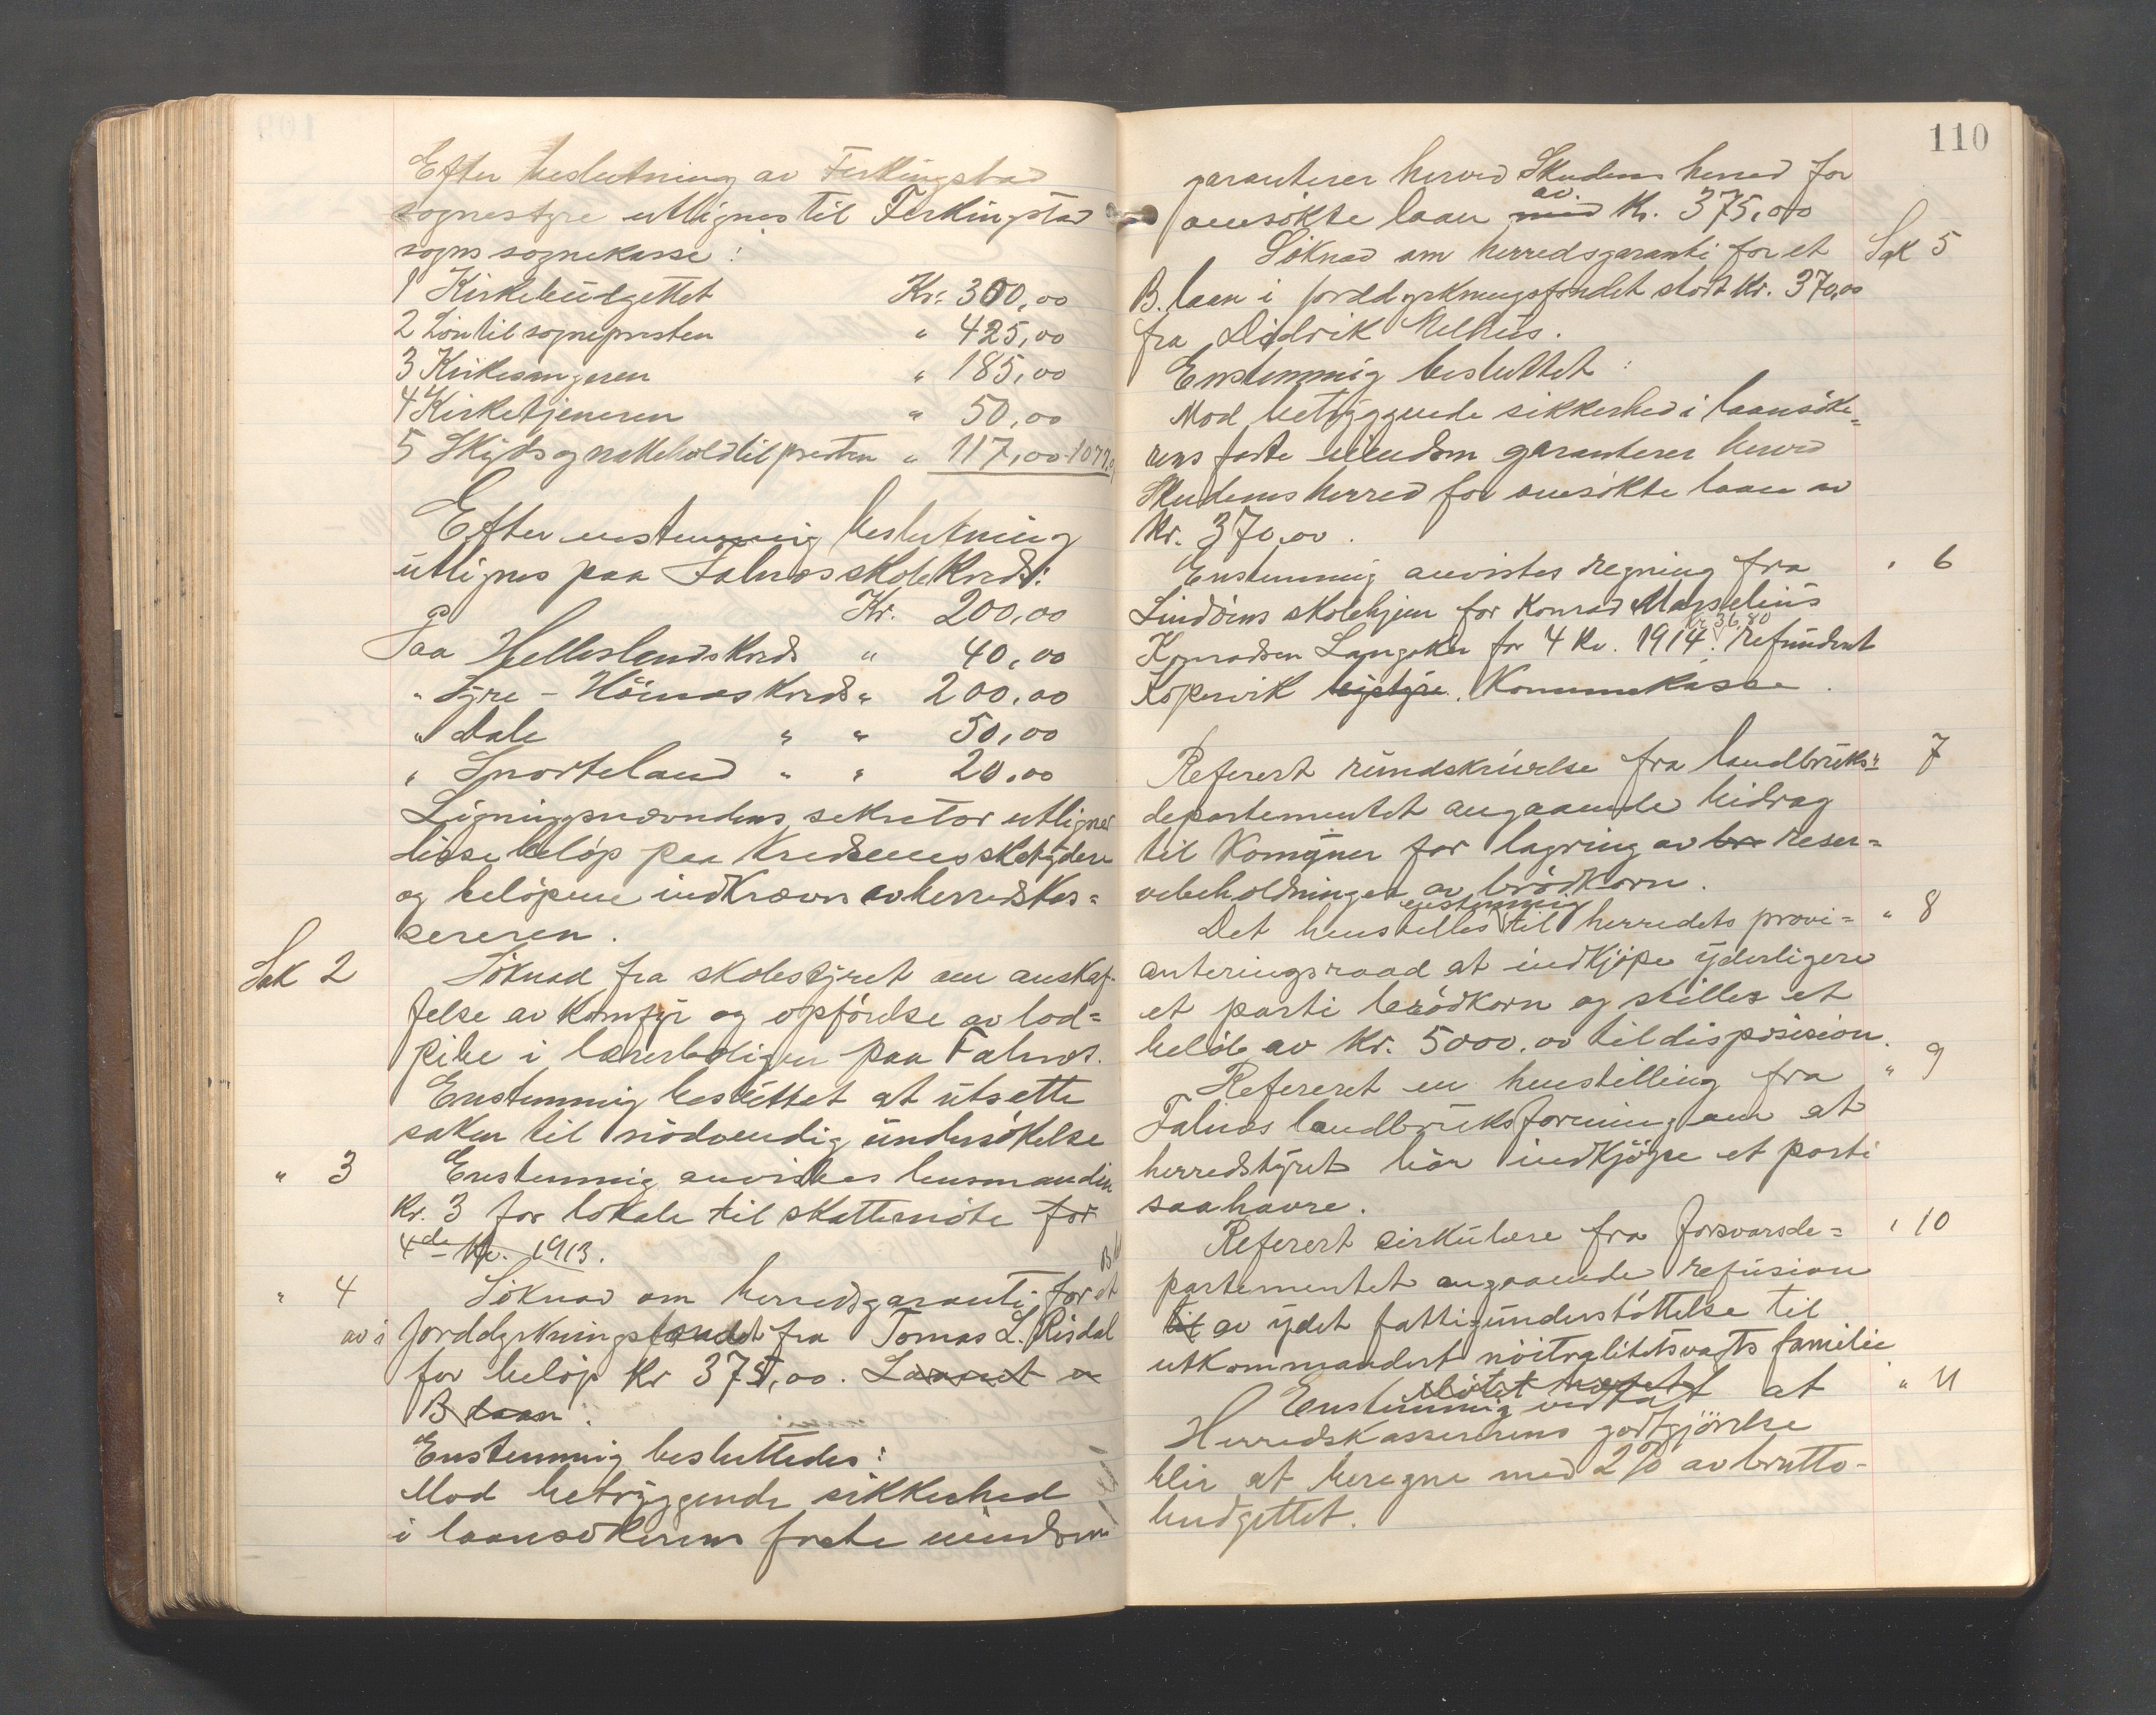 Efter beslutning av Ferkingstad
sognestyre utlignes til Ferkingstad
sogns sognekasse:
1 Kirkebudgettet Kr. 300,00
2 Løn til sognepresten " 425,00
3 Kirkesangeren " 185,00
4 Kirketjeneren " 50,00
5 Skyds og natteholdtil presten " 117,00 - 1077,
Efter enstemmig beslutning
utlignes paa Falnes skolekreds:
Kr. 200,00
Paa Hellesland skreds " 40,00
" Syre - Hönæs kreds " 200,00
" Dale " " 50,00
" Snorteland " " 20,00
Ligningsnævndens sekretær utligner
disse beløp paa kredsenes skatydere
og beløpene indkræves av herredskas=
sereren.
Sak 2 Söknad fra skolestyret om anskaf-
felse av komfyr og opførelse av lod=
pibe i lærerboligen paa Falnes.
Enstemmig besluttet at utsette
saken til nödvendig undersökelse
" 3 Enstemmig anvistes husmandin
Kr. 3 for lokale til skattemöte for
4de Kv. 1913.
" 4 Söknad om herredsgaranti for et B
av i Jorddyrkningsfondet fra Tomas L. Risdal
for beløp Kr 375,00. Laanet er
B laan.
Enstemmig besluttedes:
Mod betryggende sikkerhed
i laansökerens faste eiendom
110
garanterer herved Skudenes herred for
ansökte laan med av. Kr. 375,00
Söknad om herredsgaranti for et Sak 5
B. laan i jorddyrkningsfondet stort Kr. 370,00
fra Didrik Melhus.
Enstemmig besluttet:
Mod betryggende sikkerhed i laansöke=
rens faste eiendom garanterer herved
Skudenes herred for ansökte laan av
Kr. 370,00.
Enstemmig anvistes regning fra " 6
Lindöens skolehjem for Konrad Marselius
Konradsen Langaker for 4 Kv. 1914. Kr 36,80 refunderet
Kopervik bystyre. Kommunekasse.
Referert rundskrivelse fra landbruks= " 7
departementet angaaende bidrag
til Komuner for lagring av br reser=
vebeholdninger av brödkorn.
Det henstilles enstemmig til herredets provi= " 8
anteringsraad at indkjöpe yderligere
et parti brödkorn og stilles et
belöb av Kr. 5000,00 til disposision.
Refereret en henstilling fra " 9
Falnes landbruksforening om at
herredstyret bör indkjöpe et parti
saahavre.
Referert cirkulære fra forsvarsde= " 10
partementet angaaende refusion
til av ydet fattigunderstöttelse til
utkommandert nöitralitetsvagts familie
Enstemmig Mötet hævet vedtat at " 11
Herredskassererens godtgjörelse
blir at beregne med 2% av brutto-
budgettet.